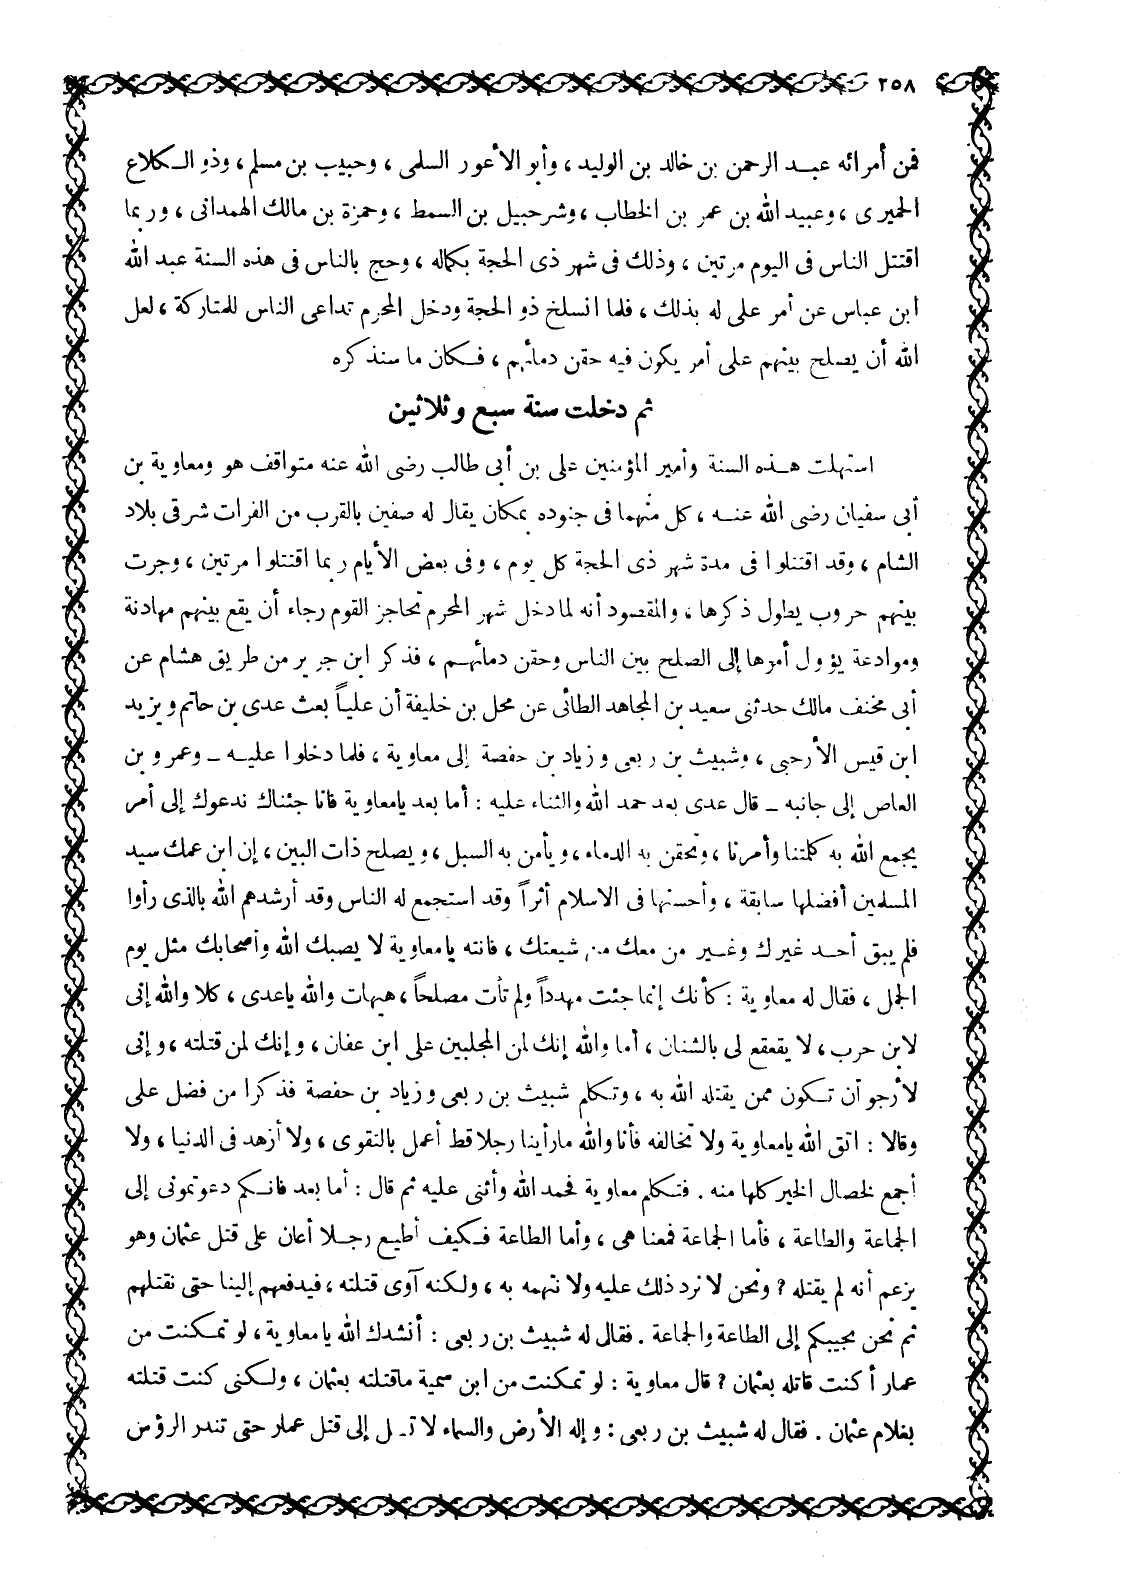 ٢٥٨
فمن أمرائه عبـد الرحمن بن خالد بن الوليد ، وأبو الأعور السلمى ، وحبيب بن مسلم ، وذو الـكلاع
الحميرى ، وعبيد الله بن عمر بن الخطاب ، وشرحبيل بن السمط ، وحمزة بن مالك الهمدانى ، وربما
اقتتل الناس فى اليوم مرتين ، وذلك فى شهر ذى الحجة بكماله ، وحج بالناس فى هذه السنة عبد الله
ابن عباس عن أمر على له بذلك ، فلما انسلخ ذو الحجة ودخل المحرم تداعى الناس للمتاركة ، لعل
الله أن يصلح بينهم على أمر يكون فيه حقن دمائهم ، فـكان ما سنذكره
ثم دخلت سنة سبع وثلاثين
استهلت هـذه السنة وأمير المؤمنين على بن أبى طالب رضى الله عنه متواقف هو ومعاوية بن
أبى سفيان رضى الله عنـه ، كل منهما فى جنوده بمكان يقال له صفين بالقرب من الفرات شرقى بلاد
الشام ، وقد اقتتلوا فى مدة شهر ذى الحجة كل يوم ، وفى بعض الأيام ربما اقتتلوا مرتين ، وجرت
بينهم حروب يطول ذكرها ، والمقصود أنه لما دخل شهر المحرم تحاجز القوم رجاء أن يقع بينهم مهادنة
وموادعة يؤول أمرها إلى الصلح بين الناس وحقن دمائهـم ، فذكر ابن جرير من طريق هشام عن
أبى مخنف مالك حدثنى سعيد بن المجاهد الطائى عن محل بن خليفة أن علياً بعث عدى بن حاتم ويزيد
ابن قيس الأرحبى ، وشبيث بن ربعى وزياد بن حفصة إلى معاوية ، فلما دخلوا عليـه ـ وعمرو بن
العاص إلى جانبه ـ قال عدى بعد حمد الله والثناء عليه : أما بعد يا معاوية فانا جئناك ندعوك إلى أمر
يجمع الله به كلمتنا وأمرنا ، وتحقن به الدماء ، ويأمن به السبل ، ويصلح ذات البين ، إن ابن عمك سيد
المسلمين أفضلها سابقة ، وأحسنها فى الاسلام أثراً وقد استجمع له الناس وقد أرشدهم الله بالذى رأوا
فلم يبق أحـد غيرك وغـير من معك من شيعتك ، فانته يا معاوية لا يصبك الله وأصحابك مثل يوم
الجمل ، فقال له معاوية : كأنك إنما جئت مهدداً ولم تأت مصلحاً ، هيهات والله يا عدى ، كلا والله إنى
لابن حرب ، لا يقعقع لى بالشنان ، أما والله إنك لمن المجلبين على ابن عفان ، وإنك لمن قتلته ، وإنى
لأرجو أن تـكون ممن يقتله الله به ، وتـكلم شبيث بن ربعى وزياد بن حفصة فذكرا من فضل على
وقالا : اتق الله يا معاوية ولا تخالفه فأنا والله مارأينا رجلا قط أعمل بالتقوى ، ولا أزهد فى الدنيا ، ولا
أجمع لخصال الخير كلها منه . فتـكلم معاوية فحمد الله وأثنى عليه ثم قال : أما بعد فانـكم دعوتمونى إلى
الجماعة والطاعة ، فأما الجماعة فمعنا هى ، وأما الطاعة فـكيف أطيـع رجـلا أعان على قتل عثمان وهو
يزعم أنه لم يقتله ؟ ونحن لا نرد ذلك عليه ولا نتهمه به ، ولـكنه آوى قتلته ، فيدفعهم إلينا حتى نقتلهم
ثم نحن نجيبكم إلى الطاعة والجماعة . فقال له شبيث بن ربعى : أنشدك الله يا معاوية ، لو تمـكنت من
عمار أكنت قاتله بعثمان ؟ قال معاوية : لو تمكنت من ابن سمية ماقتلته بعثمان ، ولـكنى كنت قتلته
بغلام عثمان . فقال له شبيث بن ربعى : وإله الأرض والسماء لا تصل إلى قتل عمار حتى تندر الرؤس